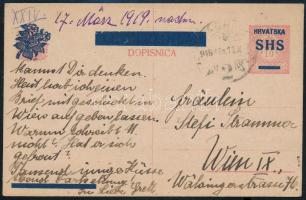 XXIV.
17. März 1919. nachm.
DOPISNICA
HRVATSKA
SHS
10
Kannst Dir denken.
Heut hab ich einen
Brief mit geschickt in
Wien aufgeben lassen.
Warum schreibt M.
nicht? Hat er sich
gefreut?
Tausend innige Küsse
Fräulein
Stefi Strammer
Wien IX.
Währingerstrasse